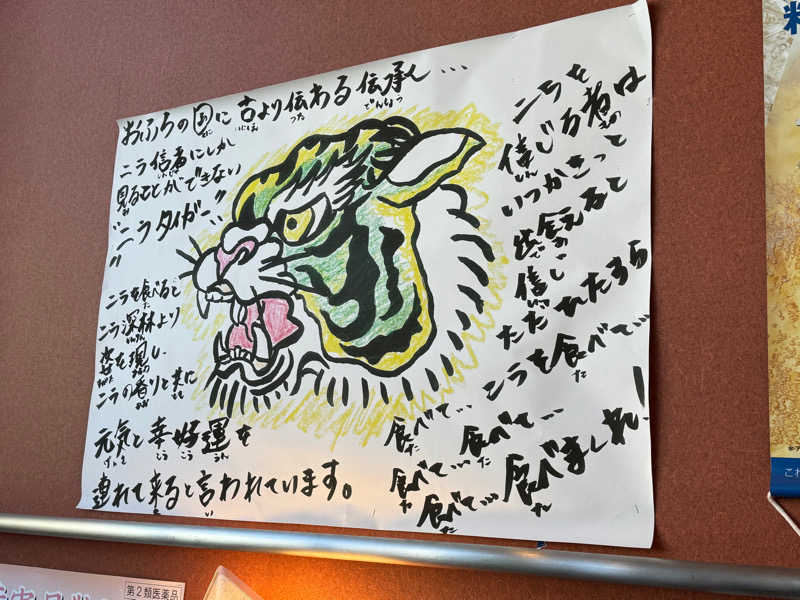 おふろの国に古より伝わる伝承〜…
ニラ信者にしか
見ることができない
"ニラタイガー"
ニラを食べると
ニラ深林より
姿を現し
ニラの香りと共に
元気と幸好運を
連れて来ると言われています。
ニラを
信じる者は
いつかきっと
出会えると
信じ
ただひたすら
ニラを食べて…
食べて… 食べて…
食べて… 食べまくれ!
食べて…
第2類医薬品